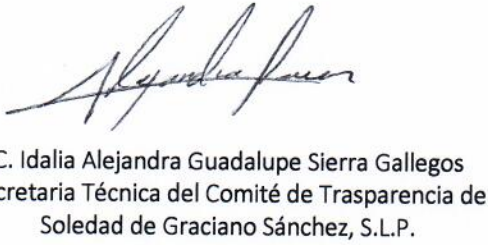 C. Idalia Alejandra Guadalupe Sierra Gallegos
cretaria Técnica del Comité de Trasparencia de
Soledad de Graciano Sánchez, S.L.P.